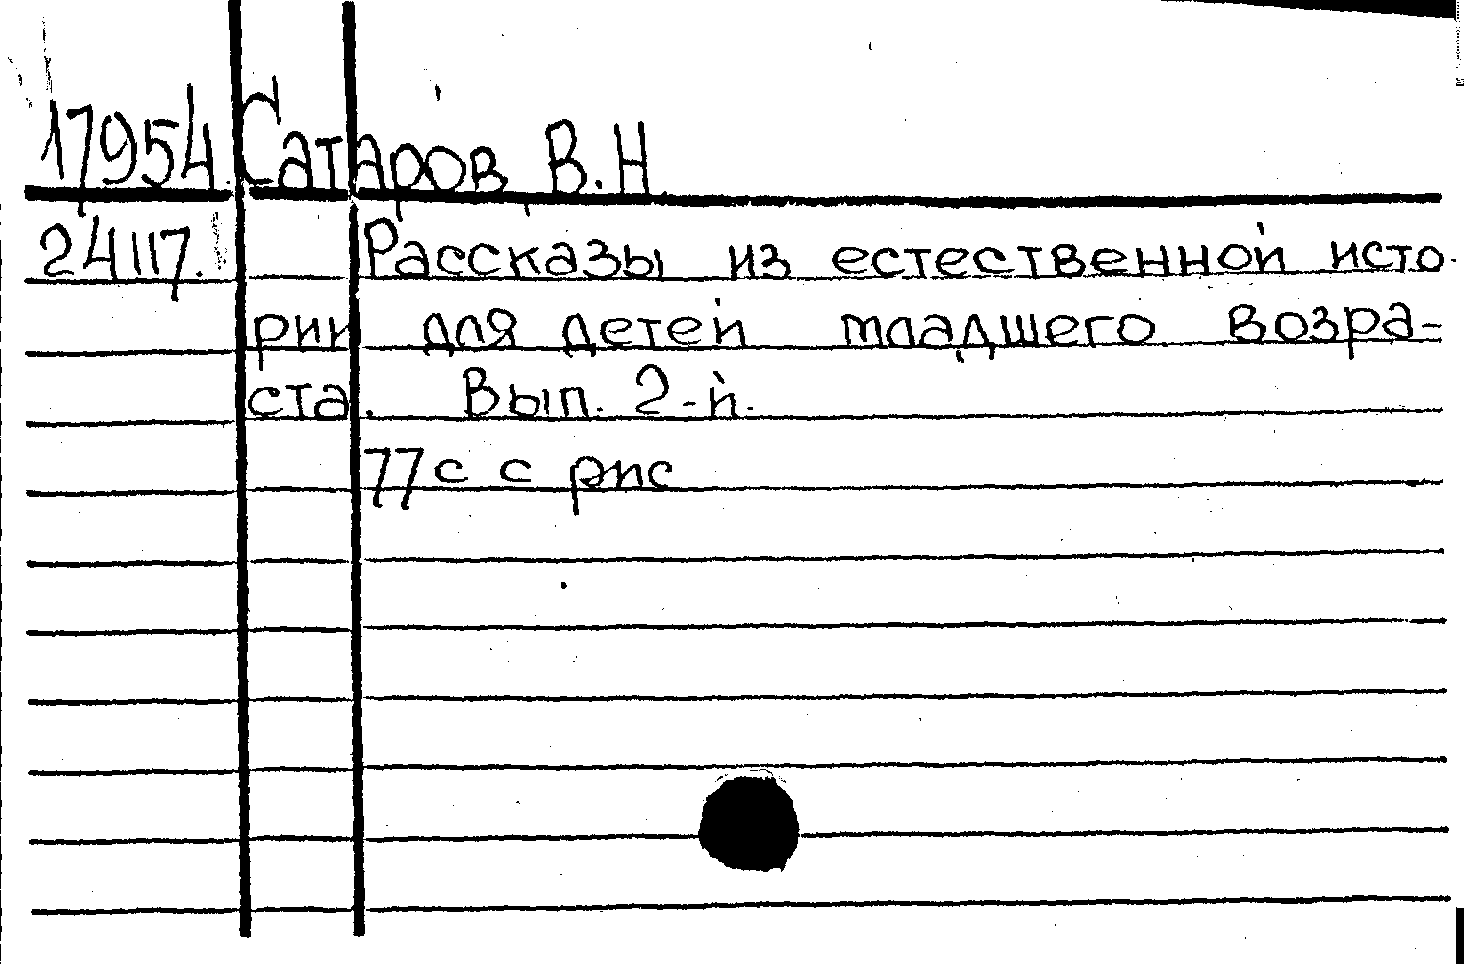 17954. Сатаров В.Н.
24117. Рассказы из естественной исто-
рии для детей младшего возра-
ста. Вып. 2-й.
77с с рис